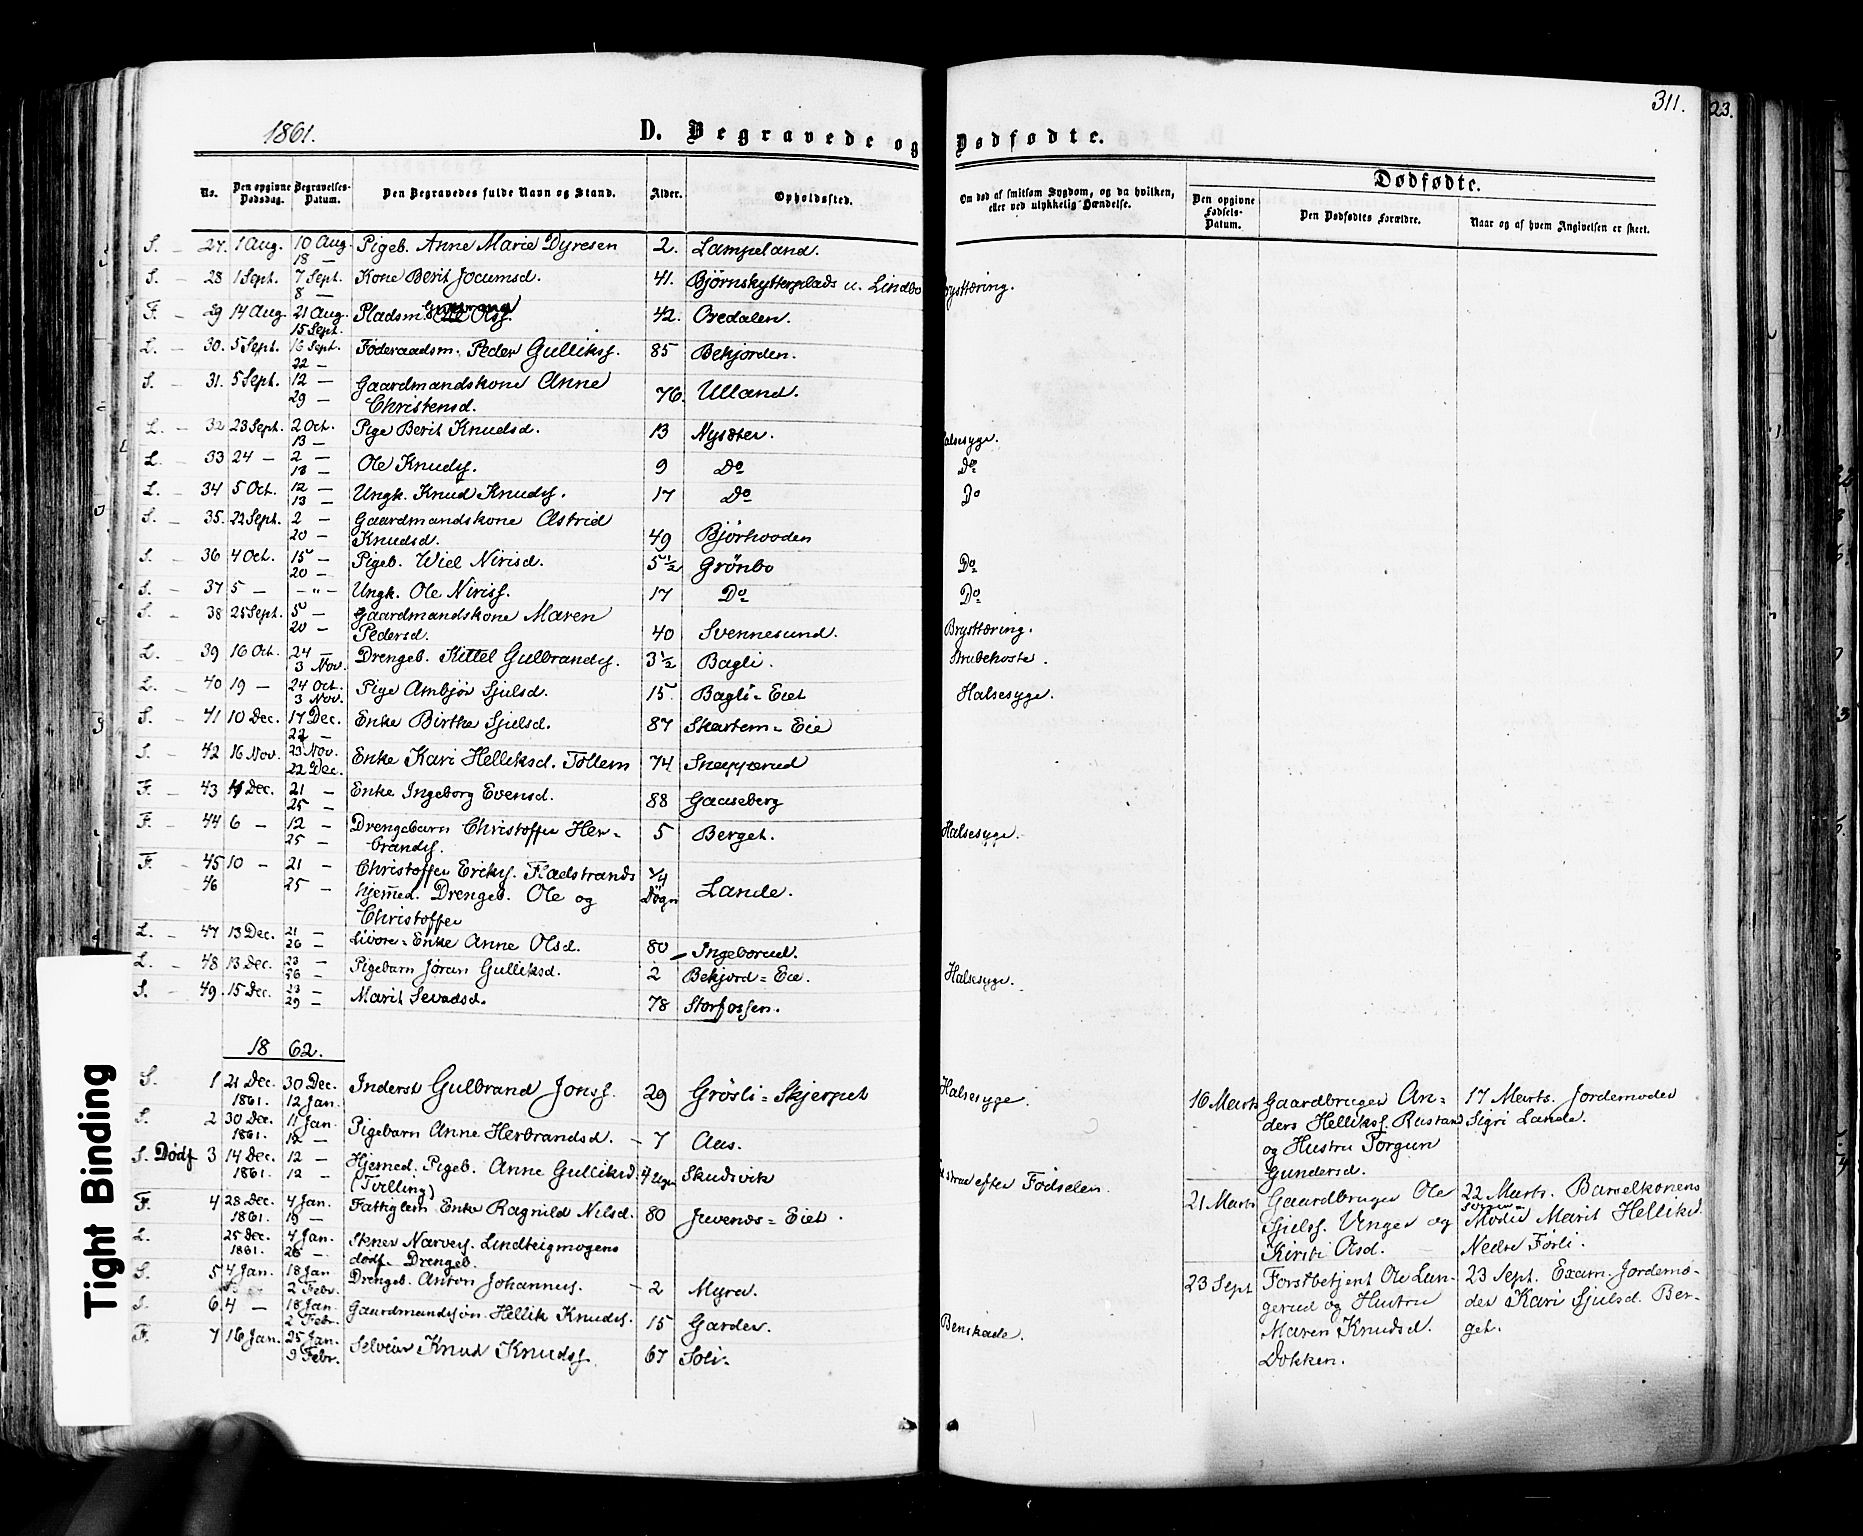 1861.
D. Begravede og Dødfødte.
311.
23.
No.
Den opgivne Dødsdag.
Begravelses-Datum.
Den Begravedes fulde Navn og Stand.
Alder.
Opholdssted.
Om død af smitsom Sygdom, og da hvilken, eller ved ulykkelig Hændelse.
Dødfødte.
Den opgivne Fødsels-Datum.
Den Dødfødtes Forældre.
Naar og af hvem Angivelsen er skeet.
S. - 27. 1 Aug. 10 Aug. Pigeb. Anne Marie Dyresen 2. Lampeland.
18 -
S. - 28 1 Sept. 7 Sept. Kone Berit Jocumsd. 41. Bjørnskytterplads u. Lindbo Brysttæring.
8 -
F. - 29 14 Aug 21 Aug. Pladsm. Olss. 42. Oredalen.
15 Sept.
L. - 30. 5 Sept. 16 Sept. Føderaadsm. Peder Gulliks. 85 Bekjorden.
22 -
S. - 31. 5 Sept. 12 - Gaardmandskone Anne
29 - Christensd. 76. Ulland.
L. - 32 23 Sept. 2 Oct. Pige Berit Knudsd. 13 Nysæter. Halsesyge.
13 -
L. - 33 24 - 2 - Ole Knuds. 9 Do Do
13 -
L. - 34 5 Oct. 12 - Ungk. Knud Knuds. 17 Do Do
13 -
S. - 35. 22 Sept. 2 - Gaardmandskone Astrid
20 - Knudsd. 49 Bjørhovden
S. - 36 4 Oct. 15 - Pigeb. Wiel Nirisd. 5½ Grönbo Do
20 -
S. - 37 5 - - " - Ungk. Ole Niriss. 17 Do Do
S. - 38 25 Sept. 5 - Gaardmandskone Maren
20 - Pedersd. 40 Svennesund. Brysttæring.
L. - 39 16 Oct. 24 - Drengeb. Kittel Gulbrands. 3½ Bagli. Strubehoste.
3 Nov.
L. - 40 19 - 24 Oct. Pige Ambjør Sjulsd. 15. Bagli-Eiet Halsesyge.
3 Nov.
S. - 41 10 Dec. 17 Dec. Enke Birthe Sjulsd. 87 Skartem-Eie
22 -
S. - 42 16 Nov. 23 Nov. Enke Kari Helliksd. Tollem 74 Sneppærud
22 Dec.
F. - 43 11 Dec. 21 - Enke Ingeborg Evensd. 88 Gaaseberg
25 -
F. - 44 6 - 12 - Drengebarn Christoffer Her-
25 - brands. 5 Berget. Halsesyge.
F. - 45 10 - 21 - Christoffer Eriks. Fladstrands ¼
- 46 25 - hjemmed. Drengeb. Ole og Døgn Lande.
Christoffer
L. - 47 13 Dec. 21 - Livøre-Enke Anne Olsd. 80 Ingeborud.
26 -
L. - 48 13 Dec. 23 - Pigebarn Jøran Gulliksd. 2 Bekjord-Eie. Halsesyge.
26 -
S. - 49. 15 Dec. 23 - Marit Sevadsd. 78 Storfossen.
29 -
1862.
S. 1 21 Dec. 30 Dec. Inderst Gulbrand Jonss. 29 Grösli-Skjerpet Halsesyge.
1861. 12 Jan.
S. 2 30 Dec. 11 Jan. Pigebarn Anne Herbrandsd. - 7 Aas.
1861. 12 -
S. Dödf 3 14 Dec. 12 - Hjemed. Pigeb. Anne Gulliksd. 4 Uger Skudsvik
1861. 12 - (Tvilling) efter Fødselen.
F. 4 28 Dec. 4 Jan. Fattiglem Enke Ragnild Nilsd. 80 Juvenæs-Eiet.
1861. 19 -
L. 25 Dec. 4 Jan. Stener Narves. Lindteigmogens
1861. 26 - dødf. Drengeb.
S. 5 4 Jan. 18 Jan Drengeb. Anton Johannes. - 2 Myra.
2 Febr.
S. 6 4 - 18 Jan. Gaardmandssøn Hellik Knuds. 15 Garder. Benskade.
2 Febr.
F. 7 16 Jan. 25 Jan. Selveier Knud Knudss. 67 Soli-
9 Febr.
16 Marts Gaardbruger An- 17 Marts. Jordemoder
ders Helliks. Rustand Sigri Lande.
og Hustru Torgun
Gundersd.
21 Marts Gaardbruger Ole 22 Marts. Barselkonens
Sjuls. Unger og Moder Marit Helliksd.
Kirsti Olsd. Nedre Forli.
23 Sept Forstbetjent Ole Lan- 23 Sept. Exam. Jordemo-
gerud og Hustru der Kari Sjulsd. Ber-
Maren Knudsd. get.
Dokken.
Tight Binding